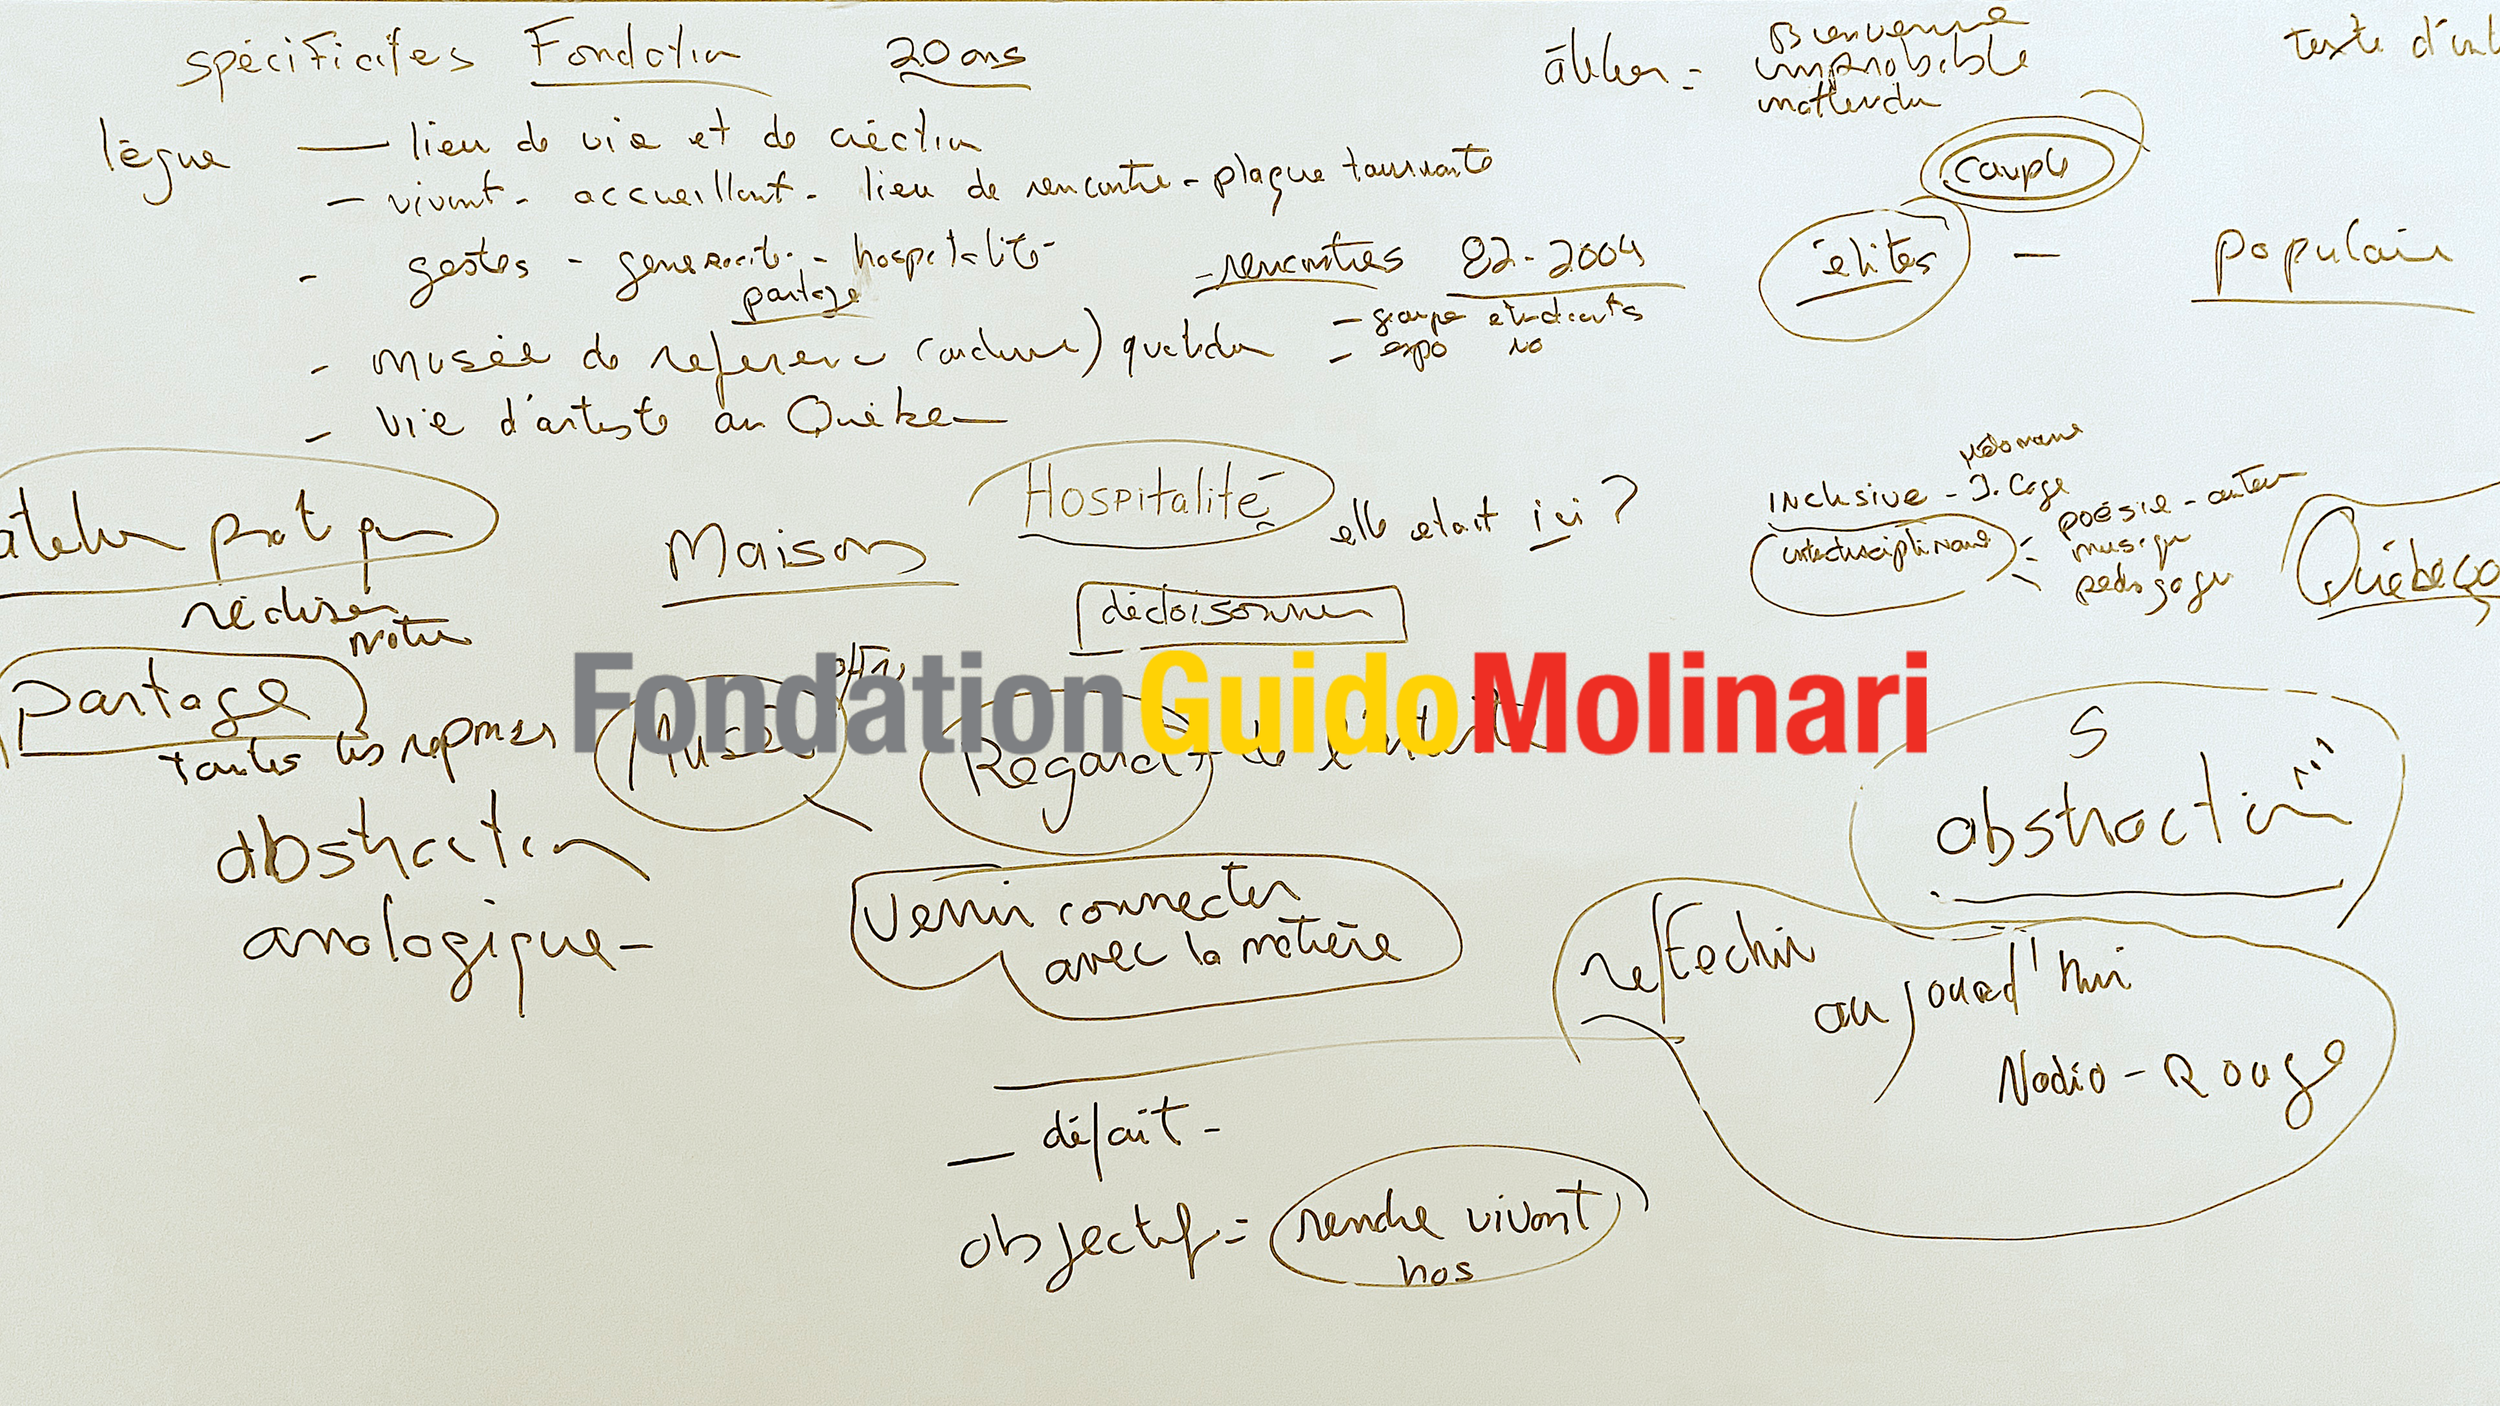 spécificités Fondation 20 ans
lègue — lieu de vie et de création
- vivant - accueillant - lieu de rencontre - plaque tournante
- gestes - générosité - hospitalité
partage
- rencontres 82-2004
- groupe étudiants
- expo
- Musée de référence
- vie d'artiste au Québec
atelier = Bienvenue
improbable
inattendu
texte d'int
couple
élites — populaire
Hospitalité
elle était ici ?
Inclusive - J. Cage
interdisciplinaire
poésie -
musique
pédagogie
Québéco
atelier pratique
Maison
décloisonner
partage
toutes les reprises
Musée
Regard - de l'artiste
FondationGuidoMolinari
abstraction
analogique -
Venir connecter
avec la matière
S
abstraction
réfléchir
aujourd'hui
Nadio - Rouge
— défait -
objectif = rendre vivant
hos